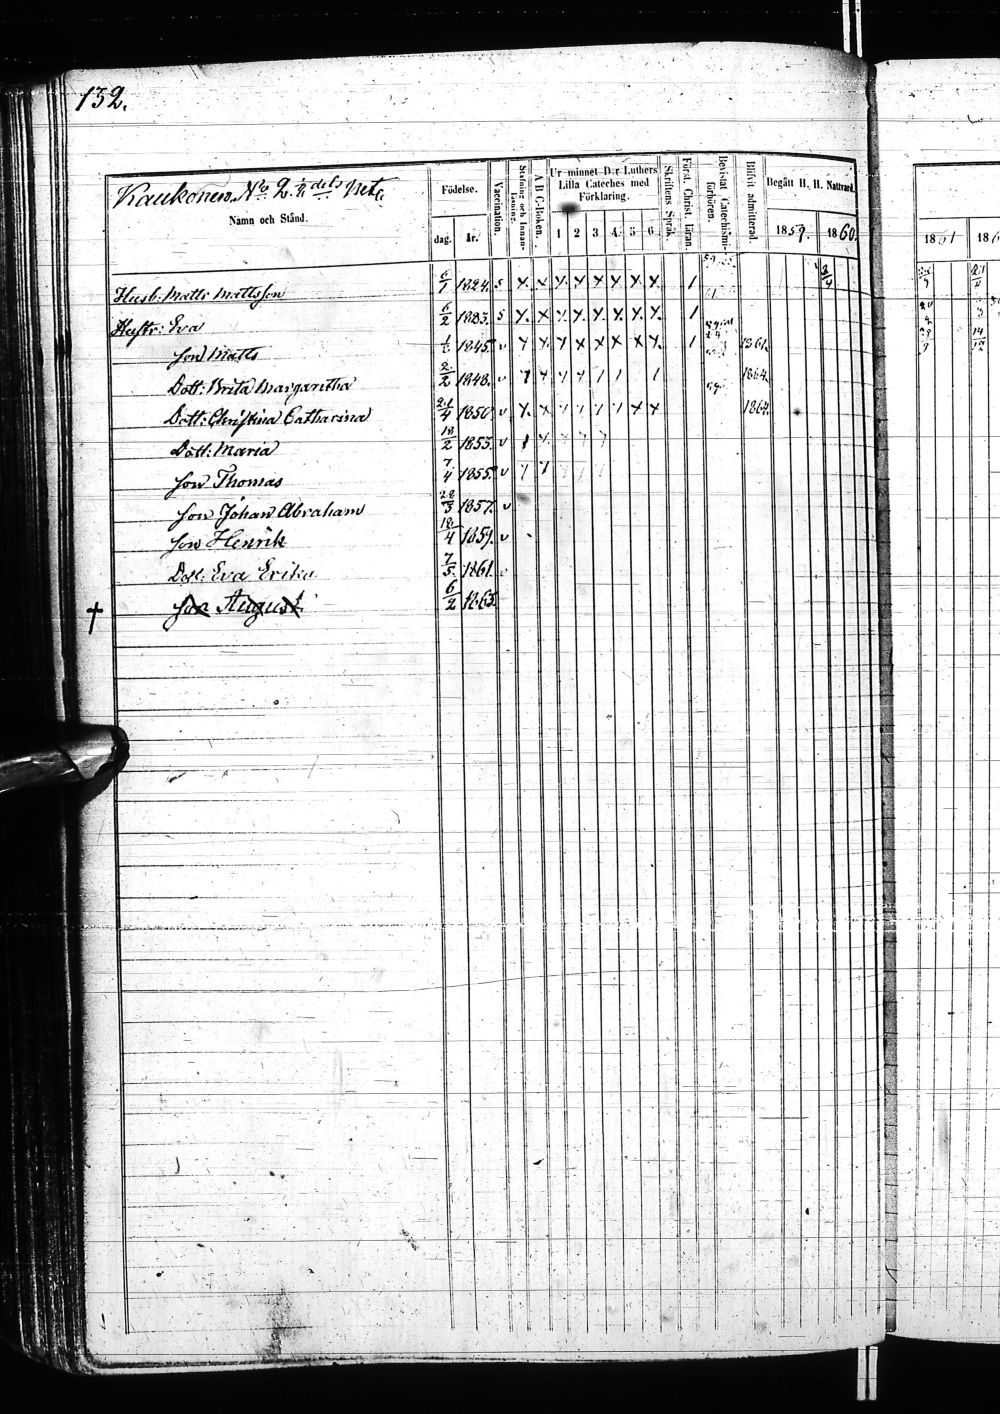 132.
Kaukonen No 2. 1/2 dels
Namn och Stånd.
Födelse.
dag. år.
Vaccination.
Stafning och Innanläsning.
A B C-Boken.
Ur minnet D:r Luthers
Lilla Cateches med
Förklaring.
1 2 3 4 5 6
Skriftens Språk.
Först. Christ. läran.
Bevistat Catechismi-förhören.
Blifvit admitterad.
Begått H. H. Nattvard.
1859. 1860.
1861
Husb: Matts Mattsson 6/1 1824. s x x x x x x x x 1 3/4
Hustr: Eva 6/2 1823. s x x x x x x x x 1
Son Matts 1845. v 1 1861.
Dott: Brita Margaretha 2/2 1848. v 1864.
Dott: Christina Catharina 21/4 1850 v 1864.
Dott: Maria 18/2 1853. v
Son Thomas 7/4 1855. v
Son Johan Abraham 28/3 1857. v
Son Henrik 18/4 1859. v
Dott: Eva Erika 7/5 1861.
† Son August 6/2 1863.